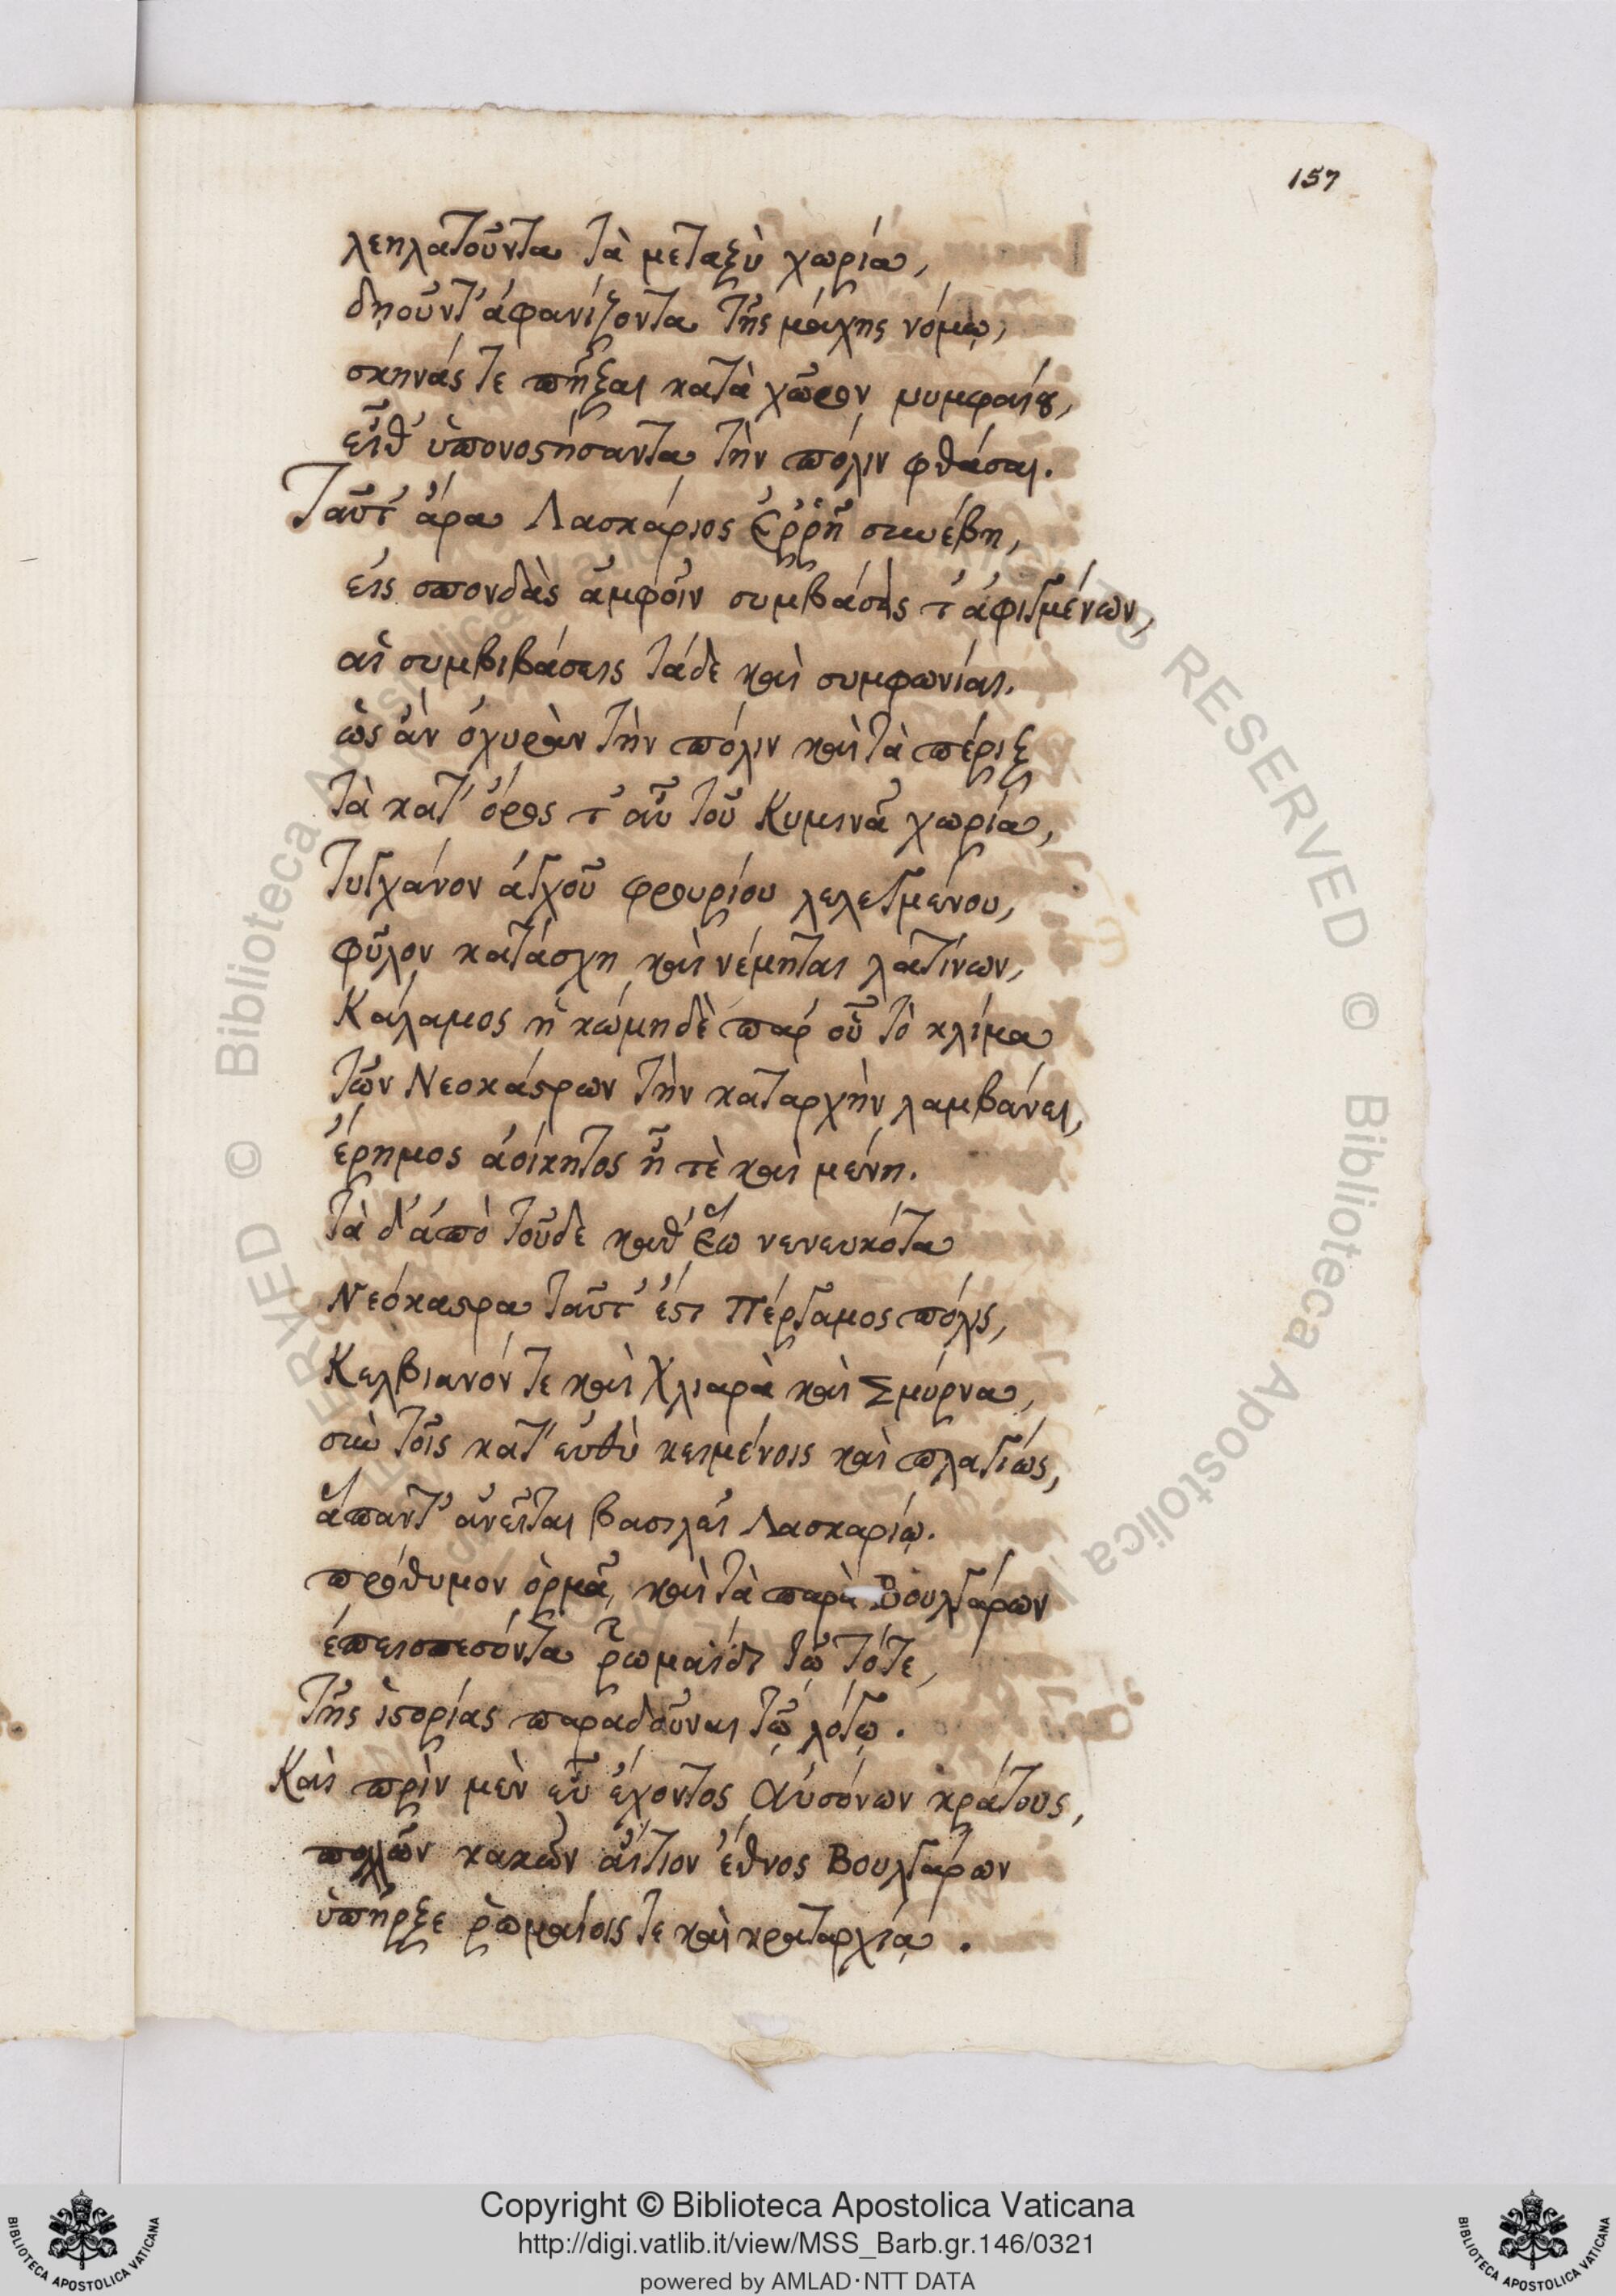 157
λεηλατοῦντα τὰ μεταξὺ χωρία,
δῃοῦντ' ἀφανίζοντα τῆς μάχης νόμῳ,
σκηνάς τε πῆξαι κατὰ χῶρον νυμφαίου,
εἶθ' ὑπονοστήσαντα τὴν πόλιν φθάσαι.
Ταῦτ' ἄρα Λασκάριος Ἐρρῆ συνέβη,
εἰς σπονδὰς ἀμφοῖν συμβάσεις τ' ἀφιγμένων,
αἱ συμβιβάσεις τάδε καὶ συμφωνίαι.
ὡς ἂν ὀχυρὰν τὴν πόλιν καὶ τὰ πέριξ
τὰ κατ' ὄρος τ' αὖ τοῦ Κυμινᾶ χωρία,
τυγχάνον ἀγχοῦ φρουρίου λελεγμένου,
φῦλον κατάσχῃ καὶ νέμηται λατίνων,
Κάλαμος ἡ κώμη δὲ παρ' οὗ τὸ κλίμα
τῶν Νεοκάστρων τὴν καταρχὴν λαμβάνει,
ἔρημος ἀοίκητος ᾖ τὲ καὶ μένῃ.
τὰ δ' ἀπὸ τοῦδε καθ' ἕω νενευκότα
Νεόκαστρα ταῦτ' ἐστι Πέργαμος πόλις,
Κελβιανόν τε καὶ Χλιαρὰ καὶ Σμύρνα,
σὺν τοῖς κατ' εὐθὺ κειμένοις καὶ πλαγίως,
ἅπαντ' ἀνεῖται βασιλεῖ Λασκαρίῳ.
πρόθυμον ὁρμᾷ, καὶ τὰ παρὰ Βουλγάρων
ἐπεισπεσόντα ῥωμαΐδι τῷ τότε,
τῆς ἱστορίας παραδοῦναι τῷ λόγῳ.
Καὶ πρὶν μὲν εὖ ἔχοντος Αὐσόνων κράτους,
πολλῶν κακῶν αἴτιον ἔθνος Βουλγάρων
ὑπῆρξε ῥωμαίοις τε καὶ κραταρχίᾳ.
Copyright © Biblioteca Apostolica Vaticana
http://digi.vatlib.it/view/MSS_Barb.gr.146/0321
powered by AMLAD·NTT DATA